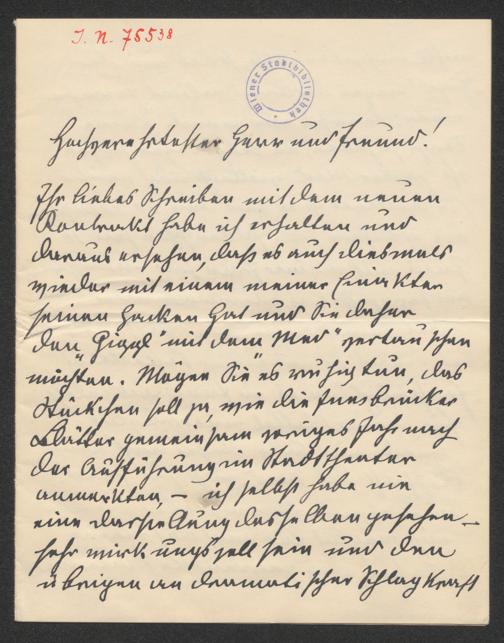 I. N. 75538
Wiener Stadtbibliothek
Hochverehrtester Herr und Freund!
Ihr liebes Schreiben mit dem neuen
Kontrakt habe ich erhalten und
daraus ersehen, daß es auch diesmals
wieder mit einem meiner Einakter
seinen Hacken hat und Sie daher
den „Giggl" mit dem „Med" vertauschen
möchten. Mögen Sie es ruhig tun, das
Stückchen soll ja, wie die Innsbrucker
Blätter gemeinsam voriges Jahr nach
der Aufführung im Stadttheater
anmerkten, – ich selbst habe nie
eine Darstellung desselben gesehen –
sehr wirkungsvoll sein und den
übrigen an dramatischer Schlagkraft